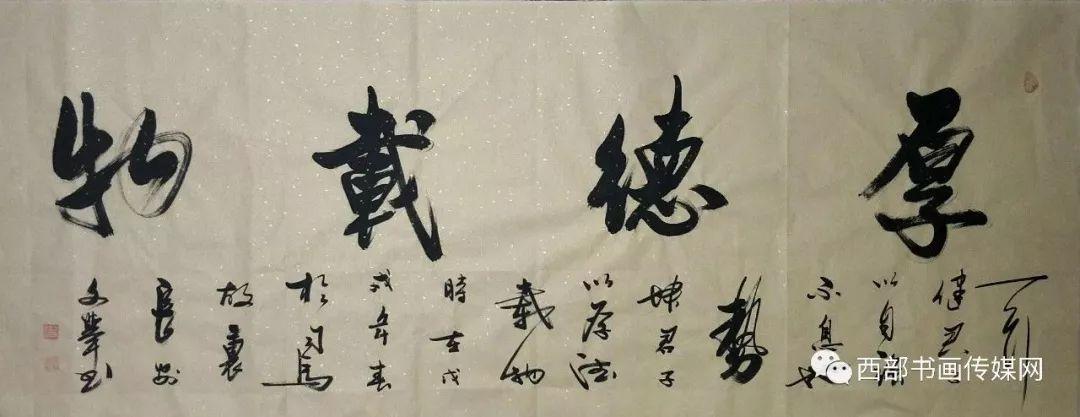 厚德載物
天行
健君子
以自強
不息地
勢
坤君子
以厚德
載物
時在戊
戌年春
於司馬
故裏
長安
文華书
西部书画传媒网